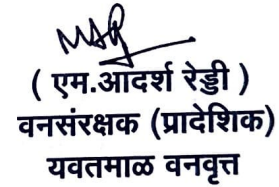 ( एम.आदर्श रेड्डी )
वनसंरक्षक (प्रादेशिक)
यवतमाळ वनवृत्त